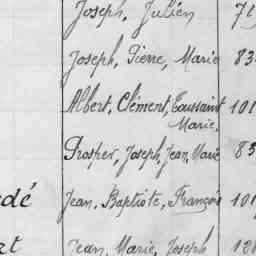 Joseph, Julien 71
Joseph, Pierre, Marie 83
Albert, Clément, Toussaint 101
Marie,
Prosper, Joseph, Jean, Marie 85
Jean, Baptiste, François 101
Jean, Marie, Joseph